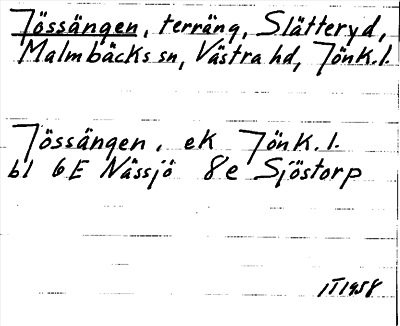 Jössängen, terräng, Slätteryd,
Malmbäcks sn, Västra hd, Jönk. l.
Jössängen, ek Jönk. l.
bl 6E Nässjö 8e Sjöstorp
IT 1958